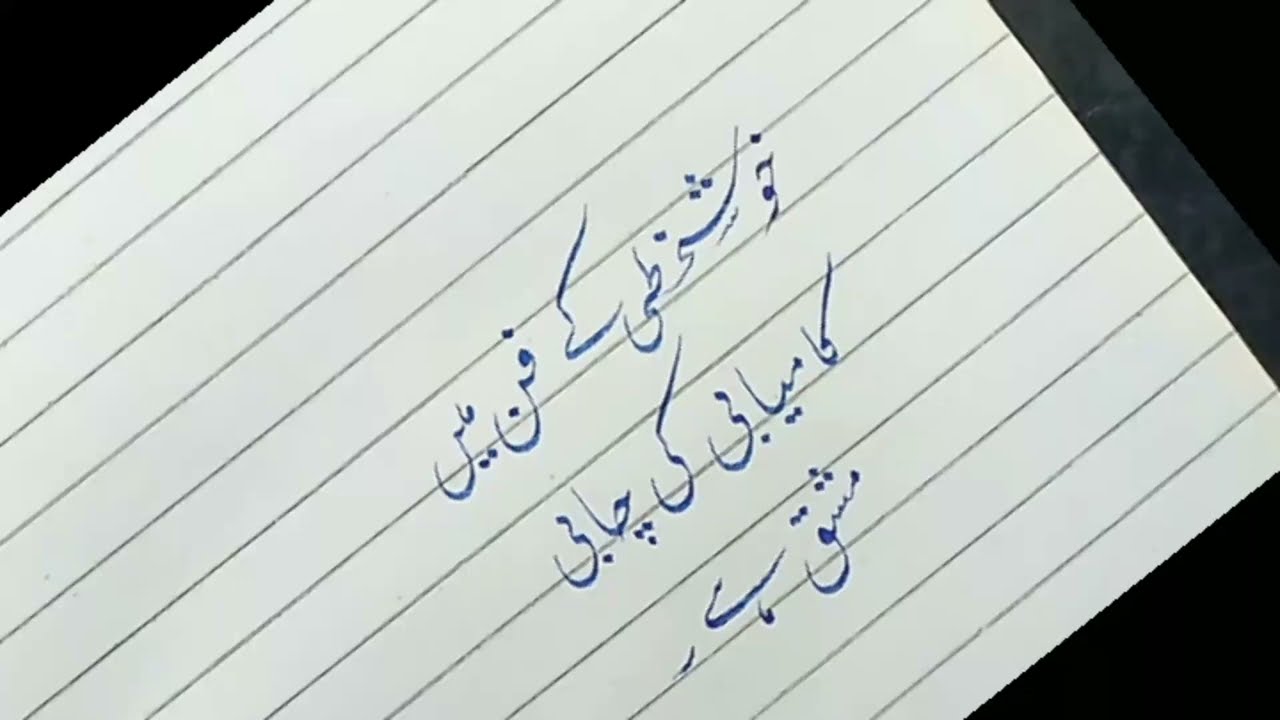 خوشخطی کے فن میں
کامیابی کی چابی
مشق ہے ۔